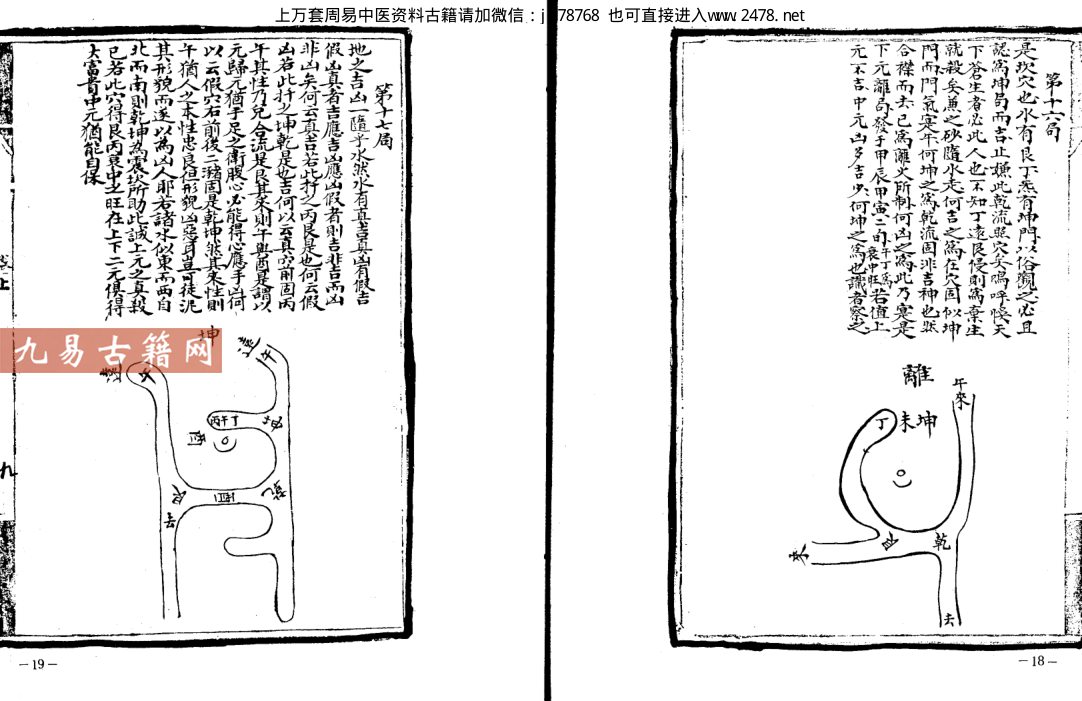 上万套周易中医资料古籍请加微信：j 78768 也可直接进入www.2478.net
第十六局
是坎穴也水有艮丁炁有坤門以俗觀之必且
認為坤局而吉止嫌此乾流與穴矣嗚呼悞天
下蒼生者必此人也不知丁遠艮侵則為棄生
就殺矣兼之砂隨水走何吉之為在穴固似坤
門而門氣寔午何坤之為乾流固非吉神也然
合襟而去已為離火所制何凶之為此乃寔是
下元離局發于甲辰甲寅二旬午丁為衰中旺若值上
元不吉中元凶多吉少何坤之為也識者察之
離
午來
丁
未坤
艮
乾
來
去
－18－
第十七局
地之吉凶一隨乎水然水有真吉真凶有假吉
假凶真者吉應吉凶應凶假者則吉非吉而凶
非凶矣何云真吉若此扦之丙艮是也何云假
凶若此扦之坤乾是也吉何以云真前固丙
午其性乃兌合流是艮其來則午與酉是謂以
元歸元猶手足之衛腹心必能得心應手凶何
以云假穴右前後二瀦固是乾坤然其來性則
午猶人之本性忠良但形貌凶惡耳豈可徒泥
其形貌而遂以為凶人耶若諸水似東而西自
北而南則乾坤為震坎所助此誠上元之真殺
已若此穴得艮丙衰中之旺在上下二元俱得
大富貴中元猶能自保
坤
遠
午
遠
午
丙午丁
坤
艮
酉
乾
去
九易古籍网
上
九
－19－